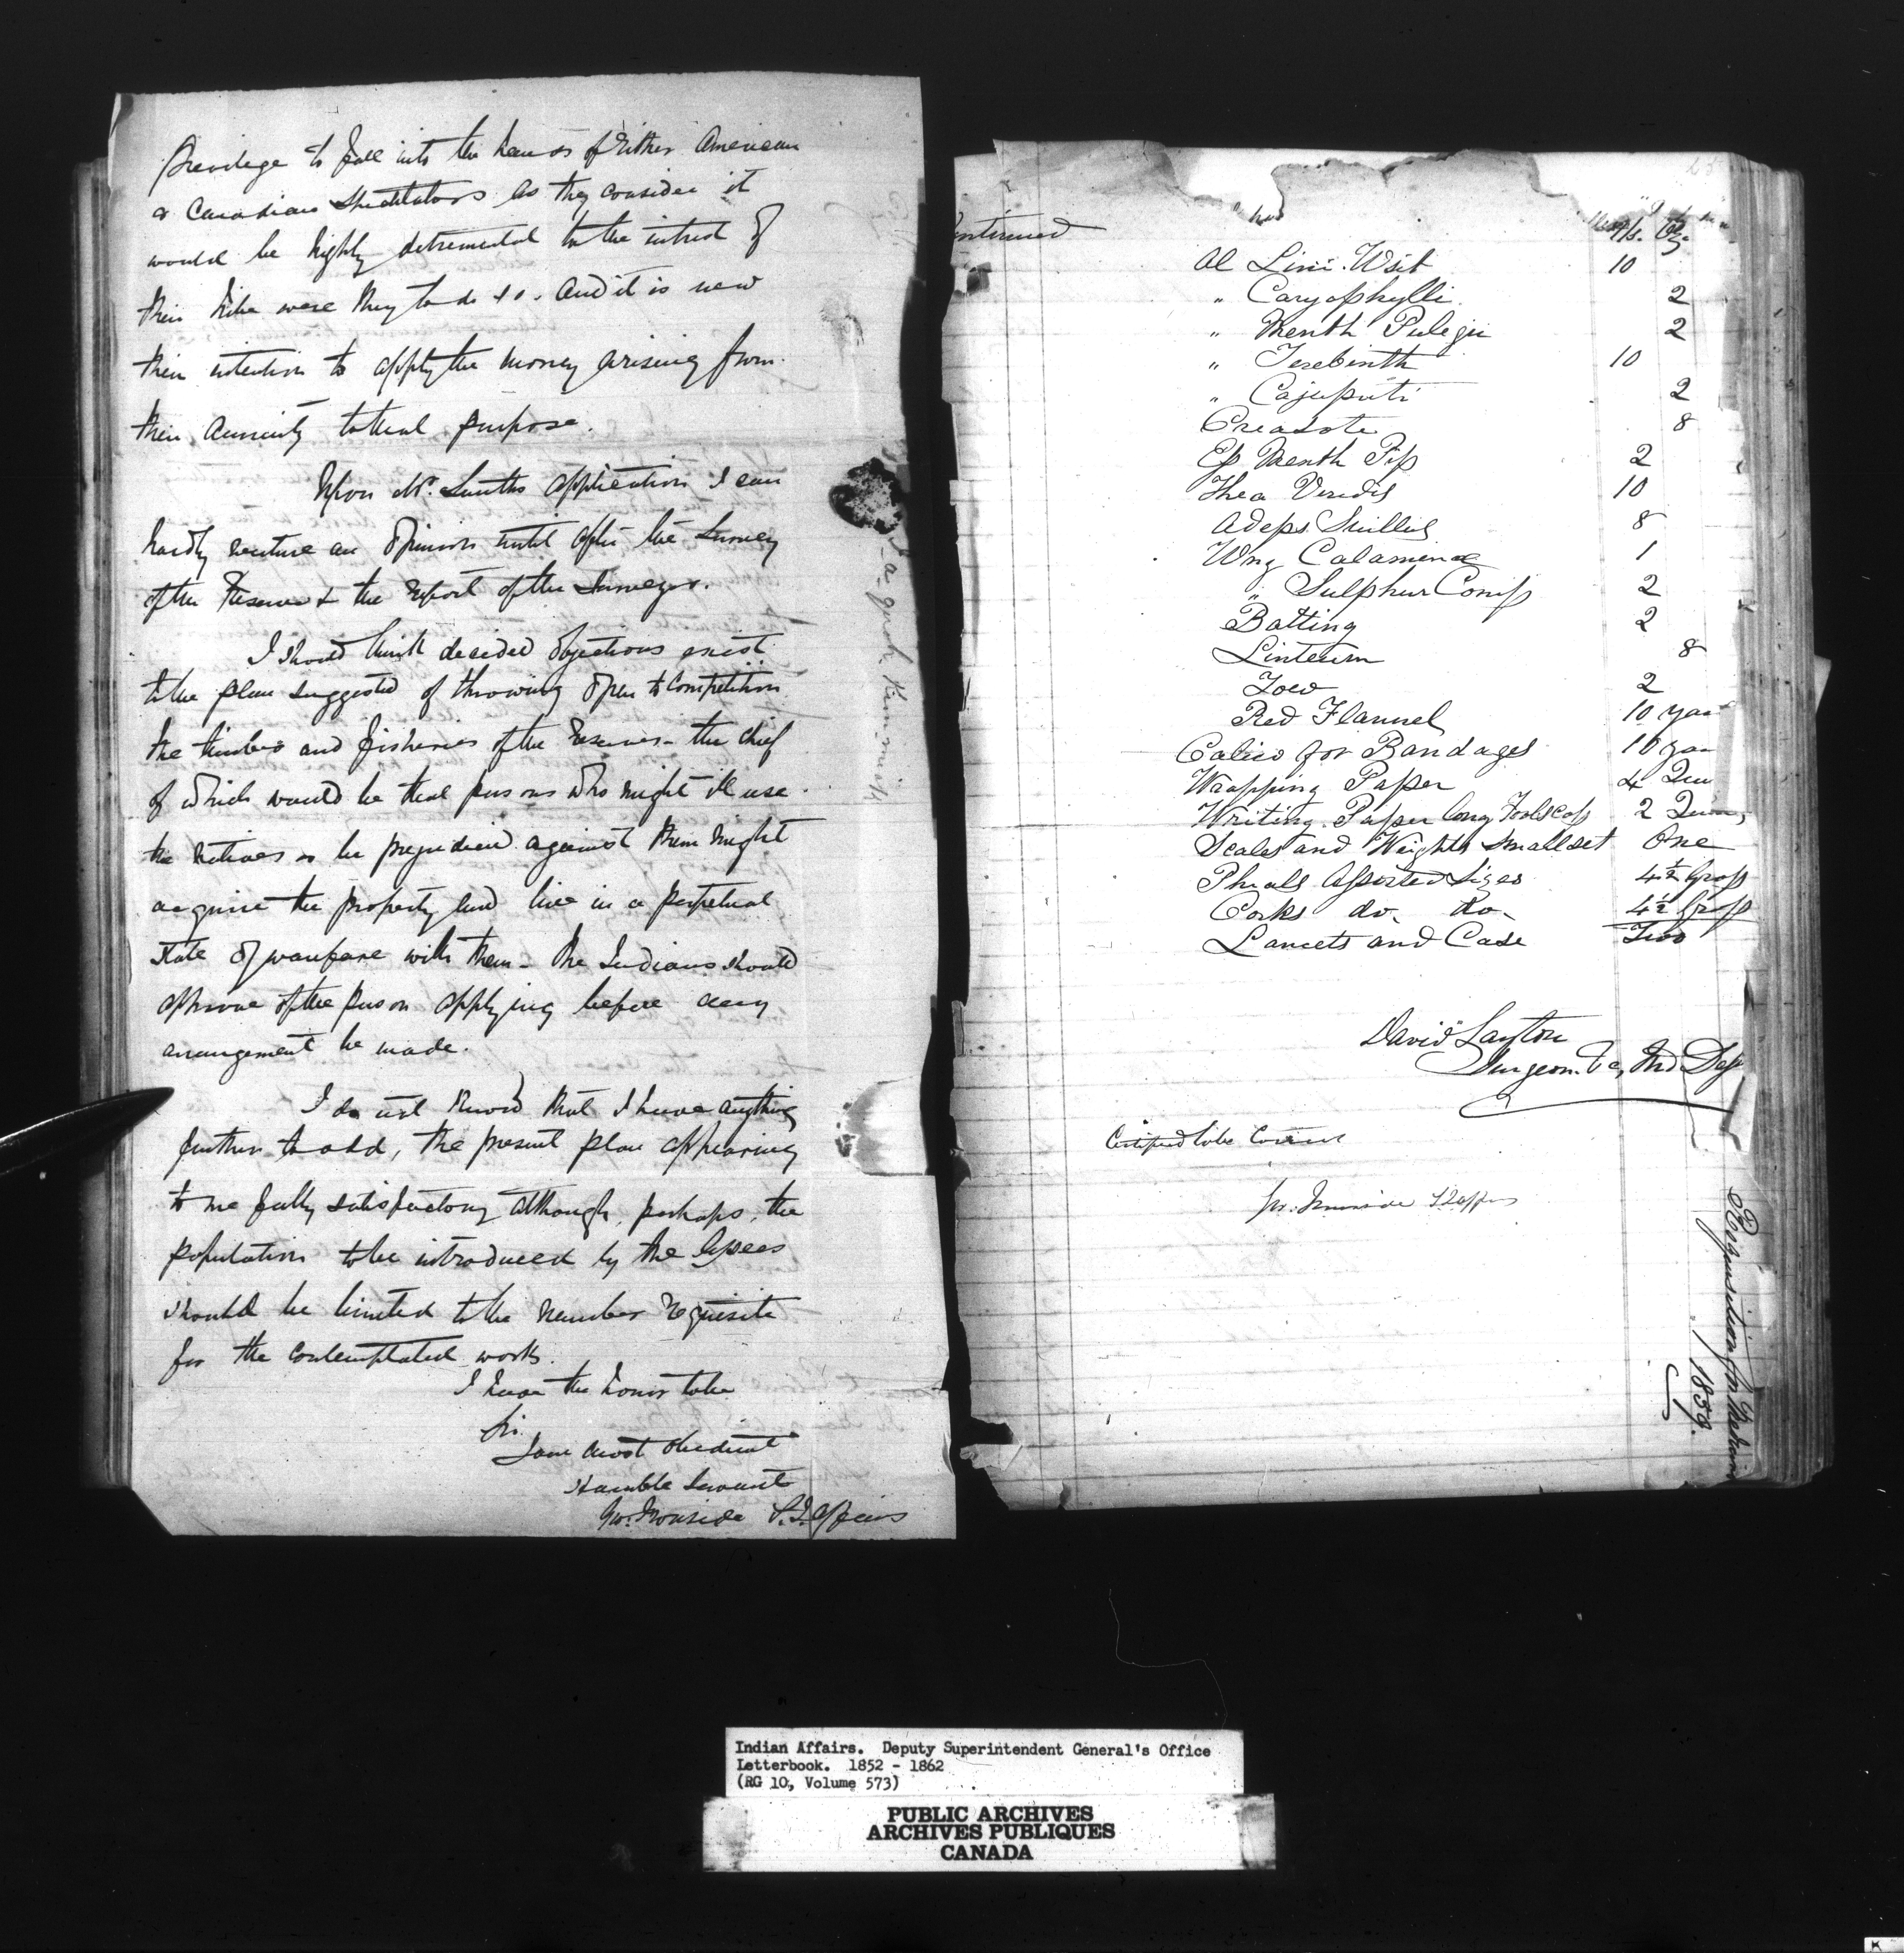 Privilege to fall into the hands of either American
or Canadian Speculators as they consider it
would be highly detremental to the intrest of
their tribe were they to do so. And it is now
their intention to apply the money arising from
their Annuity to that purpose.
Upon Mr. Smiths application I can
hardly venture an opinion until after the Survey
of the Reserve & the report of the Surveyor.
I should think decided objections exist
to the plan suggested of throwing open to Competition
the timber and fisheries of the Reserves - the chief
of which would be that persons who might ill use
the natives or be prejudiced against them might
acquire the property and live in a perpetual
state of warfare with them - the Indians should
approve of the person applying before any
arrangement be made.
I do not know that I have anything
further to add, the present plan appearing
to me fully satisfactory although, perhaps, the
population to be introduced by the lessees
should be limited to the number requisite
for the contemplated works.
I have the honor to be
Sir
Your most obedient
Humble Servant
Geo. Ironside S. I. Affairs
Continued
Ol Lini. Usit 10
" Caryophylli 2
" Menth Pulegii 2
" Terebinth 10
" Cajuputi 2
Creasote 8
Ess Menth Pip 2
Thea Viridis 10
Adeps Suillus 8
Ung Calaminæ 1
" Sulphur Comp 2
Batting 2
Linteum 8
Tow 2
Red Flannel 10
Calico for Bandages 10
Wrapping Paper 4
Writing Paper long Foolscap 2
Scales and Weights small set One
Phials Assorted Sizes 4½ Gross
Corks do. do. 4½ Gross
Lancets and Case Two
David Layton
Surgeon. Ind Dep
Certified to be Correct
Geo: Ironside S I Affairs
Requisition for Medicine
1858.
Indian Affairs. Deputy Superintendent General's Office
Letterbook. 1852 - 1862
(RG 10, Volume 573)
PUBLIC ARCHIVES
ARCHIVES PUBLIQUES
CANADA